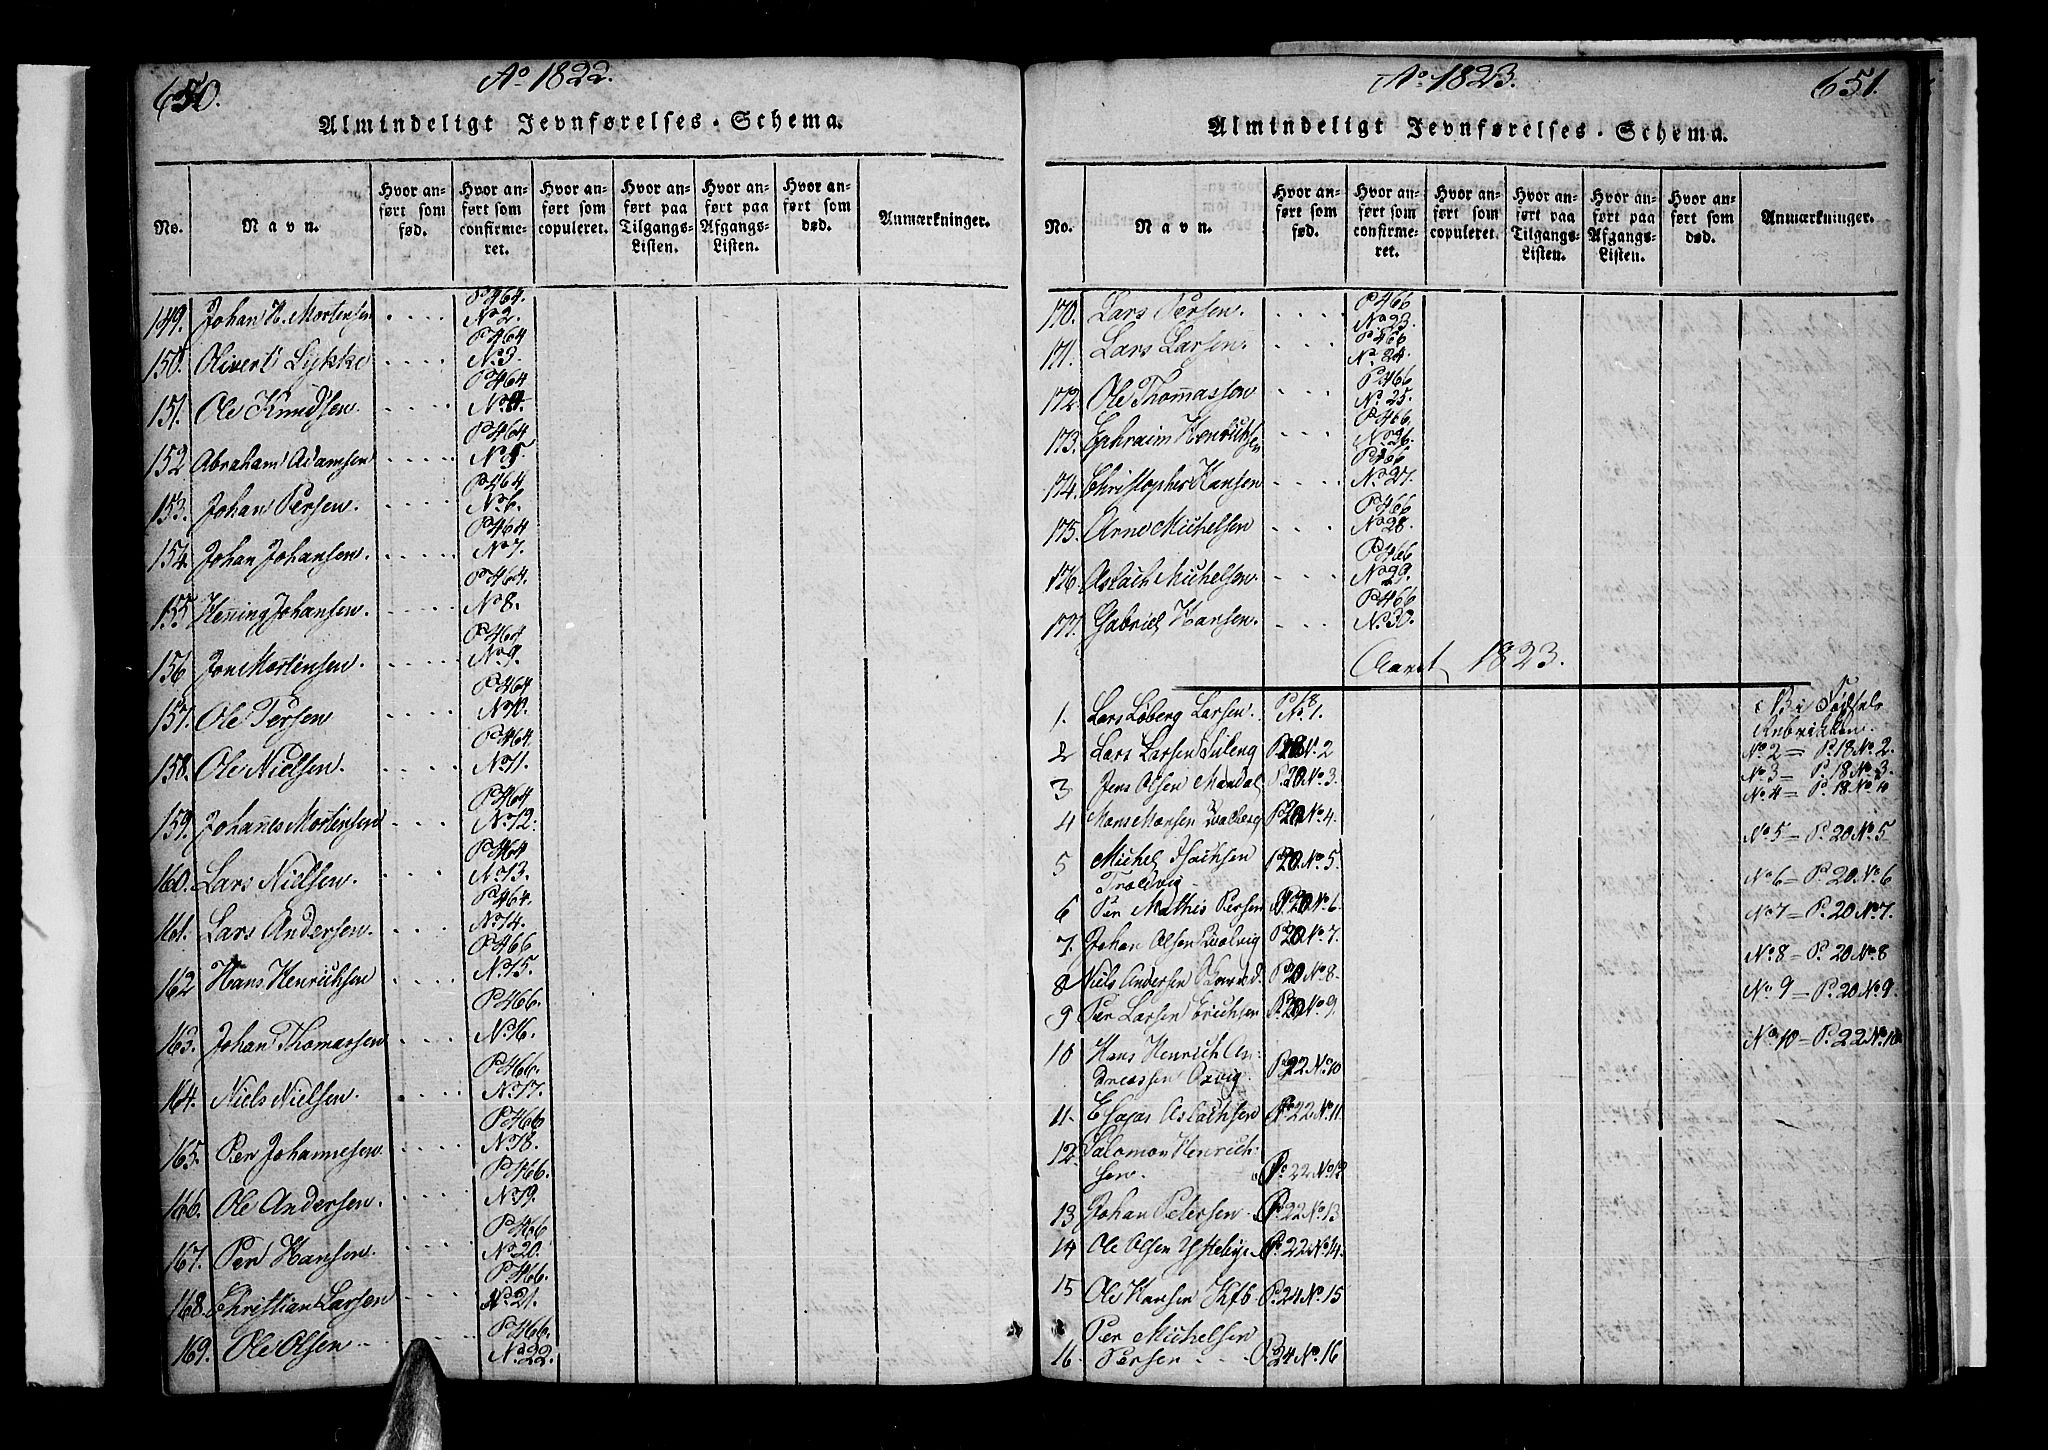 650.
Ao 1822.
Almindeligt Jevnførelses-Schema.
No.
Navn.
Hvor anført som fød.
Hvor anført som confirmeret.
Hvor anført som copuleret.
Hvor anført paa Tilgangs-Listen.
Hvor anført paa Afgangs-Listen.
Hvor anført som død.
Anmærkninger.
149. Johan H. Mortensen .... P. 464. No 2.
150. Olivert Lykke .... P. 464 No. 3.
151. Ole Knudsen. .... P. 464 No. 4.
152 Abraham Adamsen .... P. 464 No. 5.
153. Johan Persen. .... P. 464 No. 6.
154. Johan Johansen. .... P. 464 No. 7.
155 Henning Johansen. .... P. 464. No. 8.
156 Jon Mortensen. .... P. 464 No. 9.
157. Ole Persen .... P. 464 No. 10.
158. Ole Nielsen. .... P. 464. No. 11.
159. Johanes Mortensen .... P. 464 No. 12.
160. Lars Nielsen. .... P. 464 No. 13.
161. Lars Andersen. .... P. 464. No. 14.
162 Hans Henrichsen .... P. 466 No. 15.
163. Johan Thomassen .... P. 466. No. 16.
164. Niels Nielsen. .... P. 466. No. 17.
165. Per Johannesen. .... P. 466 No. 18.
166. Ole Andersen. .... P. 466. No. 19.
167. Per Hansen. .... P. 466 No. 20.
168. Christian Larsen .... P. 466. No. 21.
169. Ole Olsen .... P. 466. No. 22.
651.
Ao 1823.
Almindeligt Jevnførelses-Schema.
No.
Navn.
Hvor anført som fød.
Hvor anført som confirmeret.
Hvor anført som copuleret.
Hvor anført paa Tilgangs-Listen.
Hvor anført paa Afgangs-Listen.
Hvor anført som død.
Anmærkninger.
170. Lars Persen. .... P. 466 No. 23.
171. Lars Larsen. .... P. 466 No. 24.
172. Ole Thomassen .... P. 466 No. 25.
173. Ephraim Henrichsen .... P. 466. No. 26.
174. Christopher Hansen .... P. 466 No. 27.
175. Arne Michelsen .... P. 466 No. 28.
176. Aslach Michelsen. .... P. 466 No. 29.
177. Gabriel Hansen. .... P. 466 No. 30.
Aaret 1823.
1. Lars Løberg Larsen. P. 18 No. 1.
i Fødsels Rubrikken.
2 Lars Larsen P. 18 No. 2 No. 2 = P. 18 No. 2.
3. Jens Olsen Mandal P. 20 No. 3. No. 3 = P. 18 No. 3.
4 Mons Monsen P. 20 No. 4. No. 4 = P. 18 No. 4
5 Michel Isachsen Troldvig P. 20 No. 5. No. 5 = P. 20 No. 5
6 Per Mathis Persen P. 20 No. 6. No. 6 = P. 20 No. 6
7. Johan Olsen P. 20 No. 7. No. 7 = P. 20 No. 7.
8 Niels Andersen P. 20 No. 8. No. 8 = P. 20 No. 8
9 Per Larsen Erichsen P. 20 No. 9. No. 9 = P. 20 No. 9.
10 Hans Henrich Andreassen P. 22 No. 10 No. 10 = P. 22 No. 10
11. Esajas Aslachsen P. 22 No. 11
12. Salomon Henrichsen. P. 22 No. 12
13 Johan Petersen P. 22 No. 13
14 Ole Olsen P. 22 No. 14.
15 Ole Hansen P. 24 No. 15
16. Per Michelsen Persen P. 24 No. 16